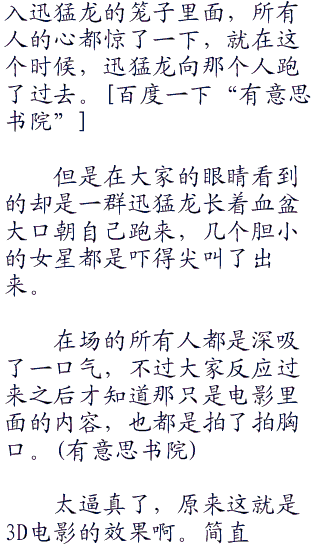 入迅猛龙的笼子里面，所有
人的心都惊了一下，就在这
个时候，迅猛龙向那个人跑
了过去。[百度一下“有意思
书院”]
但是在大家的眼睛看到
的却是一群迅猛龙长着血盆
大口朝自己跑来，几个胆小
的女星都是吓得尖叫了出
来。
在场的所有人都是深吸
了一口气，不过大家反应过
来之后才知道那只是电影里
面的内容，也都是拍了拍胸
口。(有意思书院)
太逼真了，原来这就是
3D电影的效果啊。简直